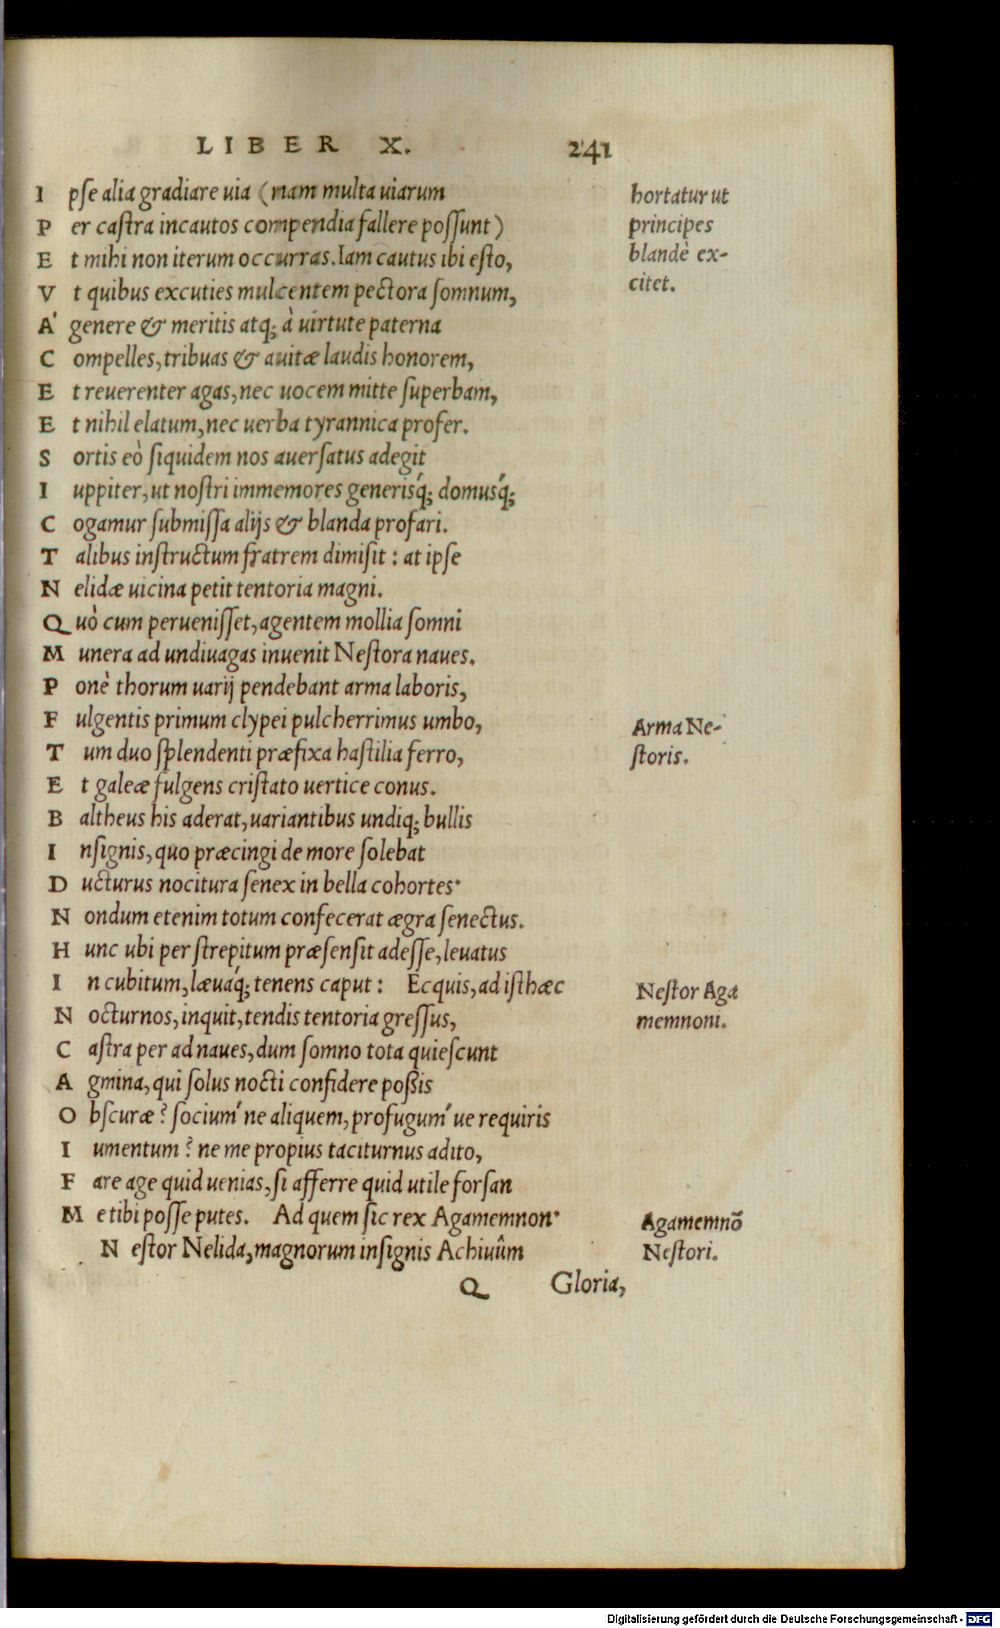 LIBER X. 241
Ipse alia gradiare uia (nam multa uiarum
Per castra incautos compendia fallere possunt)
Et mihi non iterum occurras. Iam cautus ibi esto,
Vt quibus excuties mulcentem pectora somnum,
A' genere & meritis atq; à uirtute paterna
Compelles, tribuas & auitæ laudis honorem,
Et reuerenter agas, nec uocem mitte superbam,
Et nihil elatum, nec uerba tyrannica profer.
Sortis eò siquidem nos auersatus adegit
Iuppiter, ut nostri immemores generisq́; domusq́;
Cogamur submissa alijs & blanda profari.
Talibus instructum fratrem dimisit: at ipse
Nelidæ uicina petit tentoria magni.
Quò cum peruenisset, agentem mollia somni
Munera ad undiuagas inuenit Nestora naues.
Ponè thorum uarij pendebant arma laboris,
Fulgentis primum clypei pulcherrimus umbo,
Tum duo splendenti præfixa hastilia ferro,
Et galeæ fulgens cristato uertice conus.
Baltheus his aderat, uariantibus undiq; bullis
Insignis, quo præcingi de more solebat
Ducturus nocitura senex in bella cohortes.
Nondum etenim totum confecerat ægra senectus.
Hunc ubi per strepitum præsensit adesse, leuatus
In cubitum, læuaq́; tenens caput: Ecquis, ad isthæc
Nocturnos, inquit, tendis tentoria gressus,
Castra per ad naues, dum somno tota quiescunt
Agmina, qui solus nocti confidere poßis
Obscuræ? socium' ne aliquem, profugum' ue requiris
Iumentum? ne me propius taciturnus adito,
Fare age quid uenias, si afferre quid utile forsan
Me tibi posse putes. Ad quem sic rex Agamemnon.
Nestor Nelida, magnorum insignis Achiuûm
Q Gloria,
hortatur ut
principes
blandè ex-
citet.
Arma Ne-
storis.
Nestor Aga
memnoni.
Agamemnō
Nestori.
Digitalisierung gefördert durch die Deutsche Forschungsgemeinschaft - DFG